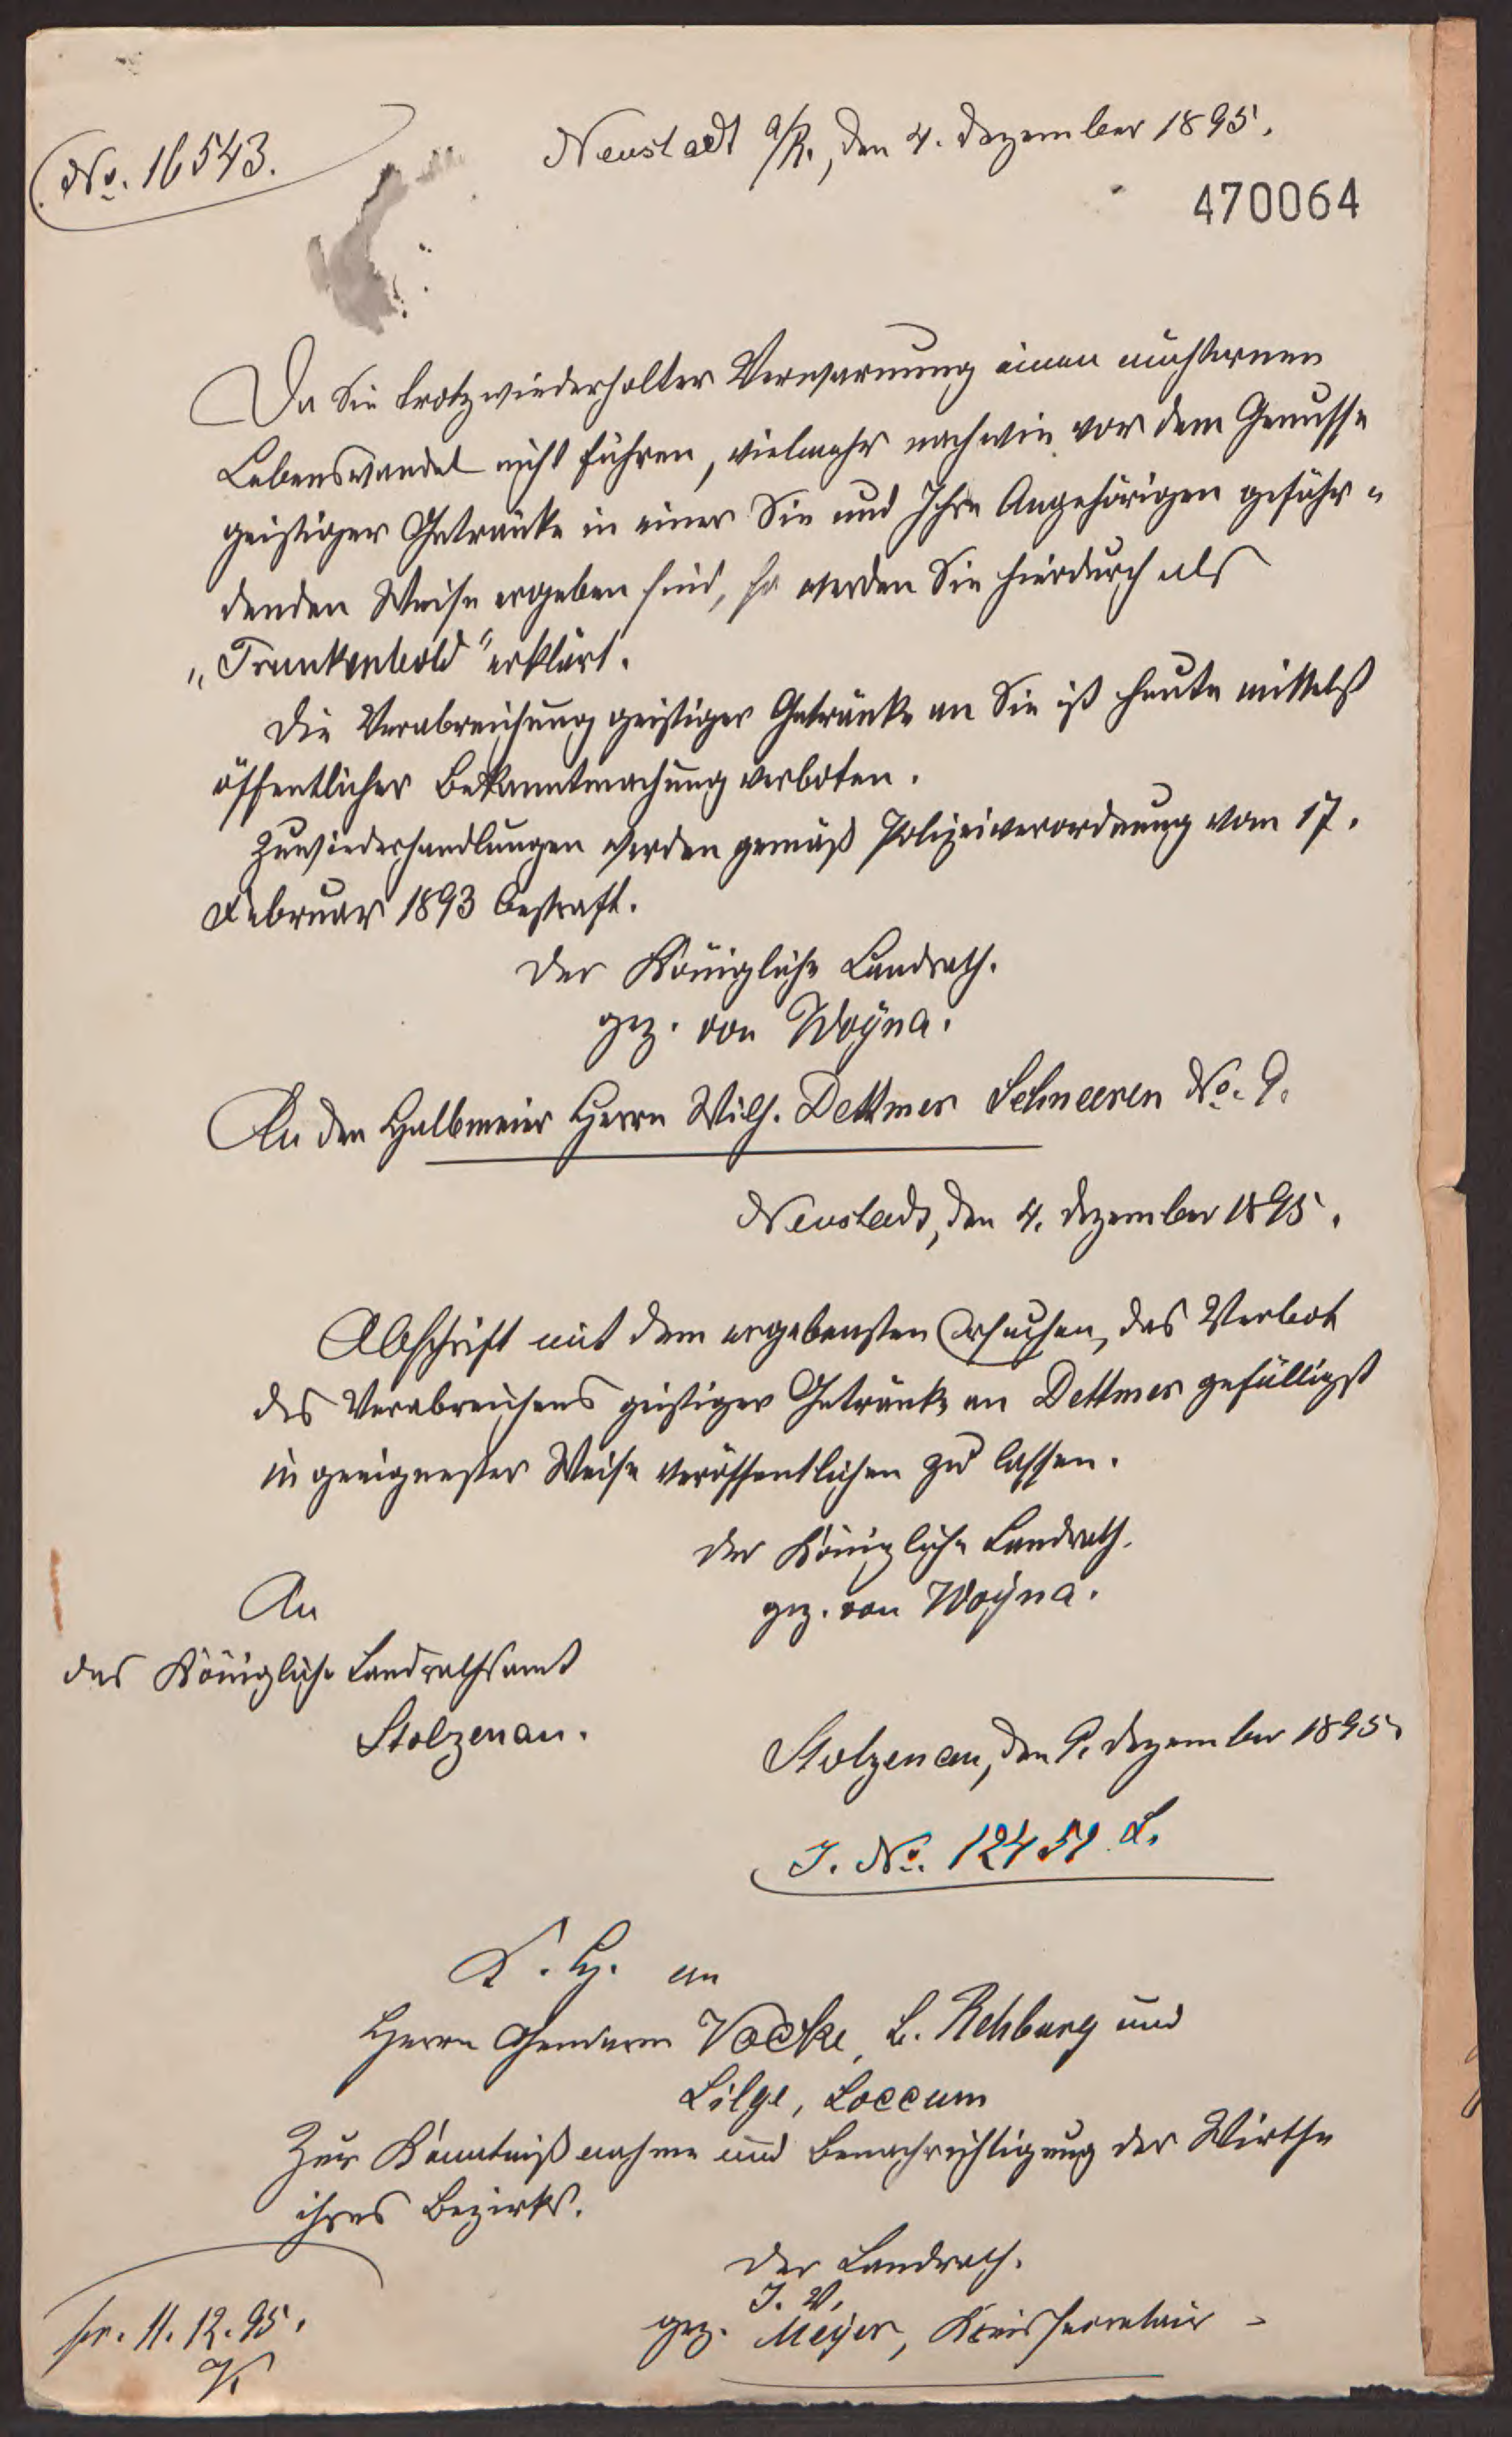 No. 16543.
Neustadt a/R., den 4. Dezember 1895.
470064
Da Sie trotz wiederholter Verwarnung einen nüchternen
Lebenswandel nicht führen, vielmehr nach wie vor dem Genusse
geistiger Getränke in einer Sie und Ihre Angehörigen gefähr-
denden Weise ergeben sind, so werden Sie hierdurch als
„Trunkenbold“ erklärt.
Die Verabreichung geistiger Getränke an Sie ist heute mittelst
öffentlicher Bekanntmachung verboten.
Zuwiederhandlungen werden gemäß Polizeiverordnung vom 17.
Februar 1893 bestraft.
Der Königliche Landrath.
gez. von Woÿna.
An den Halbmeier Herrn Wilh. Dettmer Schneeren No. 9.
Neustadt, den 4. Dezember 1895.
Abschrift mit dem ergebensten Ersuchen, das Verbot
des Verabreichens geistiger Getränke an Dettmer gefälligst
in geeignester Weise veröffentlichen zu lassen.
Der Königliche Landrath.
gez. von Woÿna.
An
das Königliche Landrathsamt
Stolzenau.
Stolzenau, den 9. Dezember 1895.
J. No. 12451 L.
K. H. an
Herrn Gendarm Vocke, B. Rehburg und
Lilge, Loccum
Zur Kenntnißnahme und Benachrichtigung der Wirthe
ihres Bezirks.
Der Landrath.
J. V.
gez. Meÿer, Kreissecretair
pr. 11. 12. 95.
V.